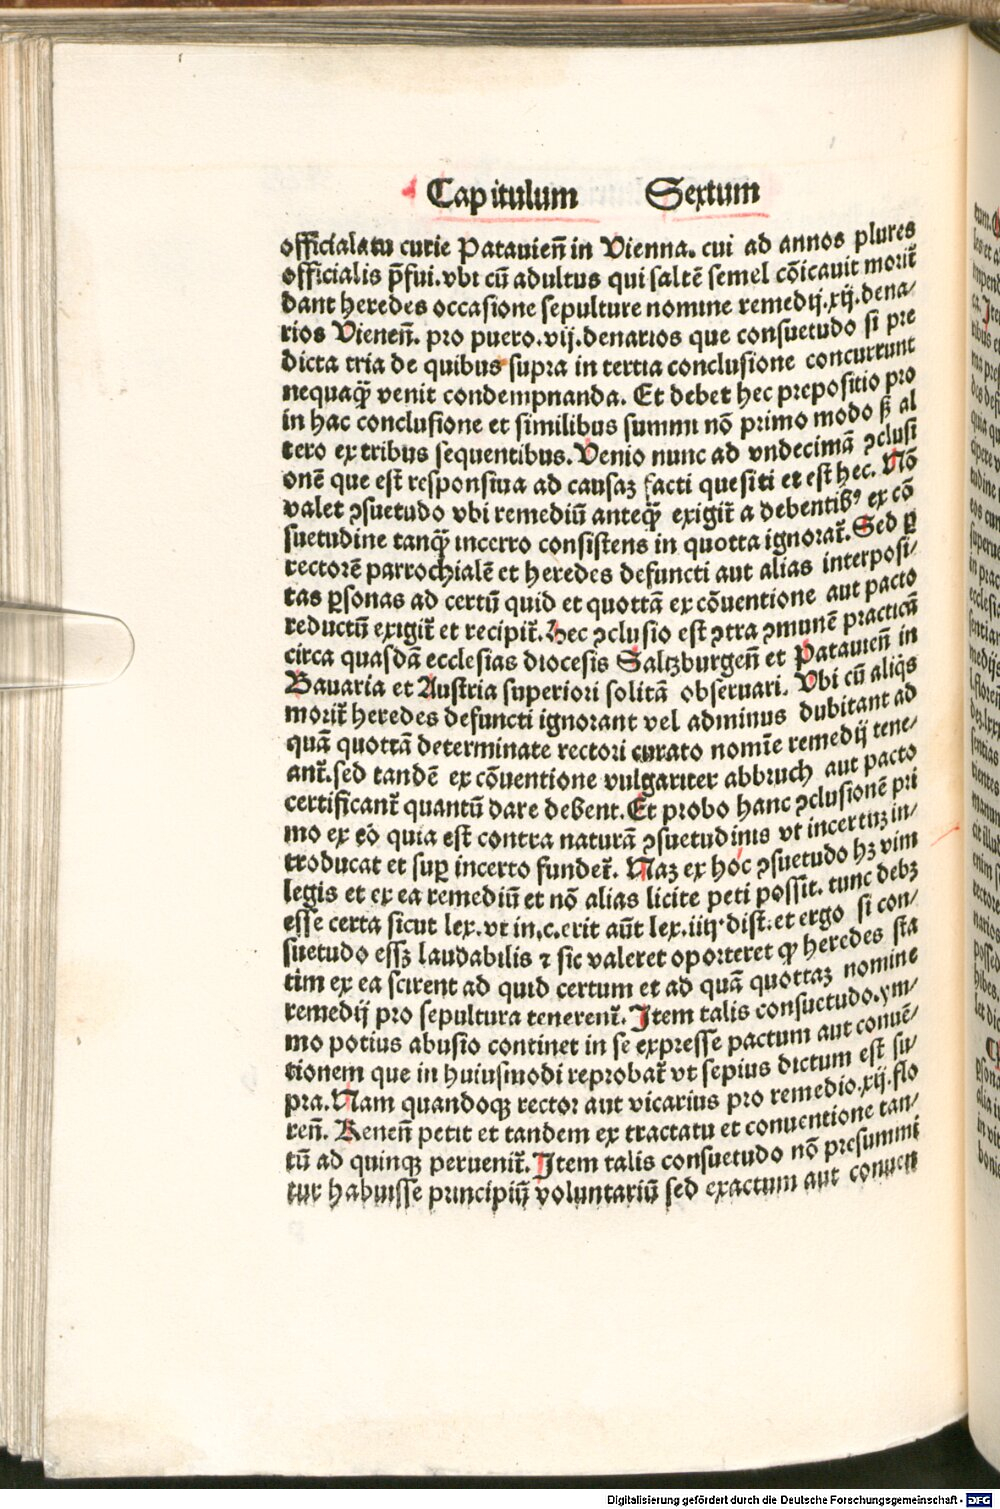 Capitulum Sextum
officialatu curie Patauieñ in Vienna. cui ad annos plures
officialis p̄fui. vbi cū adultus qui saltē semel cōicauit morit̄
dant heredes occasione sepulture nomine remedij. xij. dena/
rios Vieneñ. pro puero. vij. denarios que consuetudo si pre
dicta tria de quibus supra in tertia conclusione concurrunt
nequaq̄ venit condempnanda. Et debet hec prepositio pro
in hac conclusione et similibus summi nō primo modo ꝫ al
tero ex tribus sequentibus. Venio nunc ad vndecimā ꝯclusi
onē que est responsiua ad causaꝫ facti quesiti et est hec. Nō
valet ꝯsuetudo vbi remediū anteq̄ exigit̄ a debentibꝰ ex cō
suetudine tanq̄ incerto consistens in quotta ignorat̄. Sed ꝑ
rectorē parrochialē et heredes defuncti aut alias interposi/
tas ꝑsonas ad certū quid et quottā ex cōuentione aut pacto
reductū exigit̄ et recipit̄. Hec ꝯclusio est ꝯtra ꝯmunē practicā
circa quasdā ecclesias diocesis Saltzburgeñ et Patauieñ in
Bauaria et Austria superiori solitā obseruari. Vbi cū aliq̄s
morit̄ heredes defuncti ignorant vel adminus dubitant ad
quā quottā determinate rectori curato nomīe remedij tene/
ant̄. sed tandē ex cōuentione vulgariter abbruch aut pacto
certificant̄ quantū dare debent. Et probo hanc ꝯclusionē pri
mo ex eo quia est contra naturā ꝯsuetudinis vt incertuꝫ in/
troducat et suꝑ incerto fundet̄. Naꝫ ex hoc ꝯsuetudo hꝫ vim
legis et ex ea remediū et nō alias licite peti possit. tunc debꝫ
esse certa sicut lex. vt in. c. erit aūt lex. iiij. dist. et ergo si con/
suetudo essꝫ laudabilis ⁊ sic valeret oporteret ꝙ heredes sta
tim ex ea scirent ad quid certum et ad quā quottaꝫ nomine
remedij pro sepultura tenerent̄. Item talis consuetudo. ym/
mo potius abusio continet in se expresse pactum aut conuē/
tionem que in huiusmodi reprobat̄ vt sepius dictum est su/
pra. Nam quandoqꝫ rector aut vicarius pro remedio. xij. flo
reñ. Reneñ petit et tandem ex tractatu et conuentione tan/
tū ad quinqꝫ peruenit̄. Item talis consuetudo nō presummi
tur habuisse principiū voluntariū sed exactum aut conuen
Digitalisierung gefördert durch die Deutsche Forschungsgemeinschaft - DFG